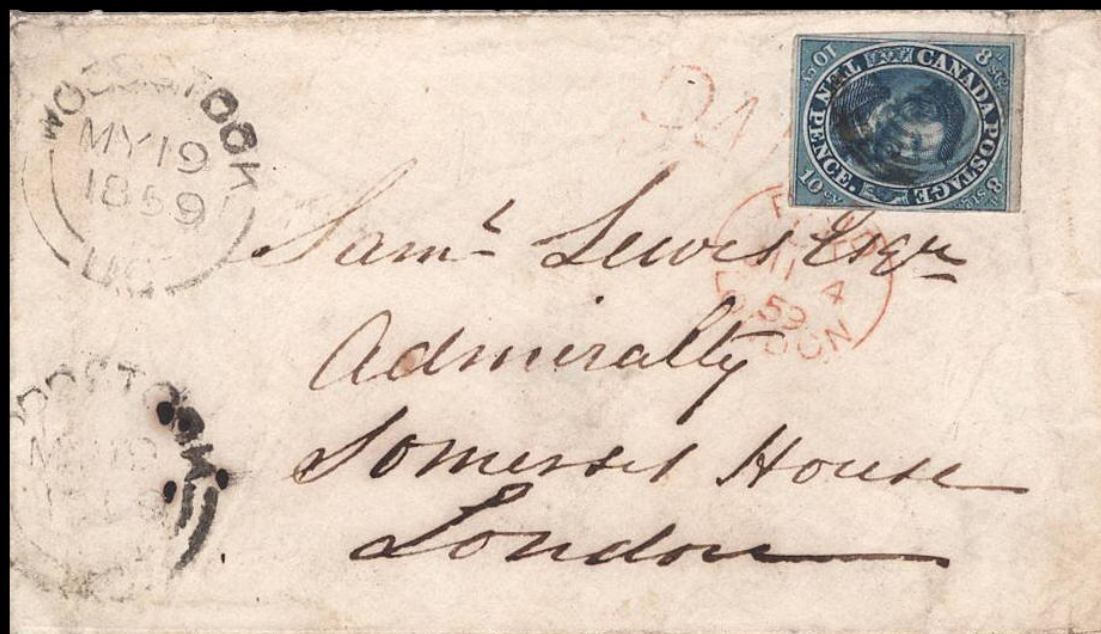 WOODSTOCK
MY 19
1859
U.C.
PAID
8d stg.
CANADA POSTAGE
8d stg.
10 cy.
TEN PENCE.
10 cy.
PAID
4
59
LONDON
Saml Lewis Esqr
Admiralty
Somerset House
London
WOODSTOCK
MY 19